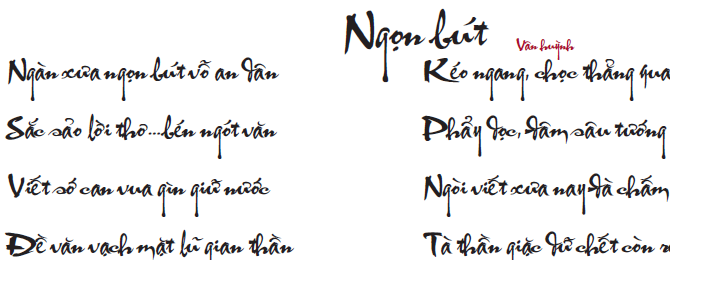 Ngọn bút
Vân huỳnh
Ngàn xưa ngọn bút vỗ an dân
Sắc sảo lời thơ...bén ngót văn
Viết sớ can vua gìn giữ nước
Đề văn vạch mặt lũ gian thần
Kéo ngang, chọc thẳng qua
Phẩy dọc, đâm sâu tướng
Ngòi viết xưa nay đà chấm
Tà thần giặc dữ chết còn